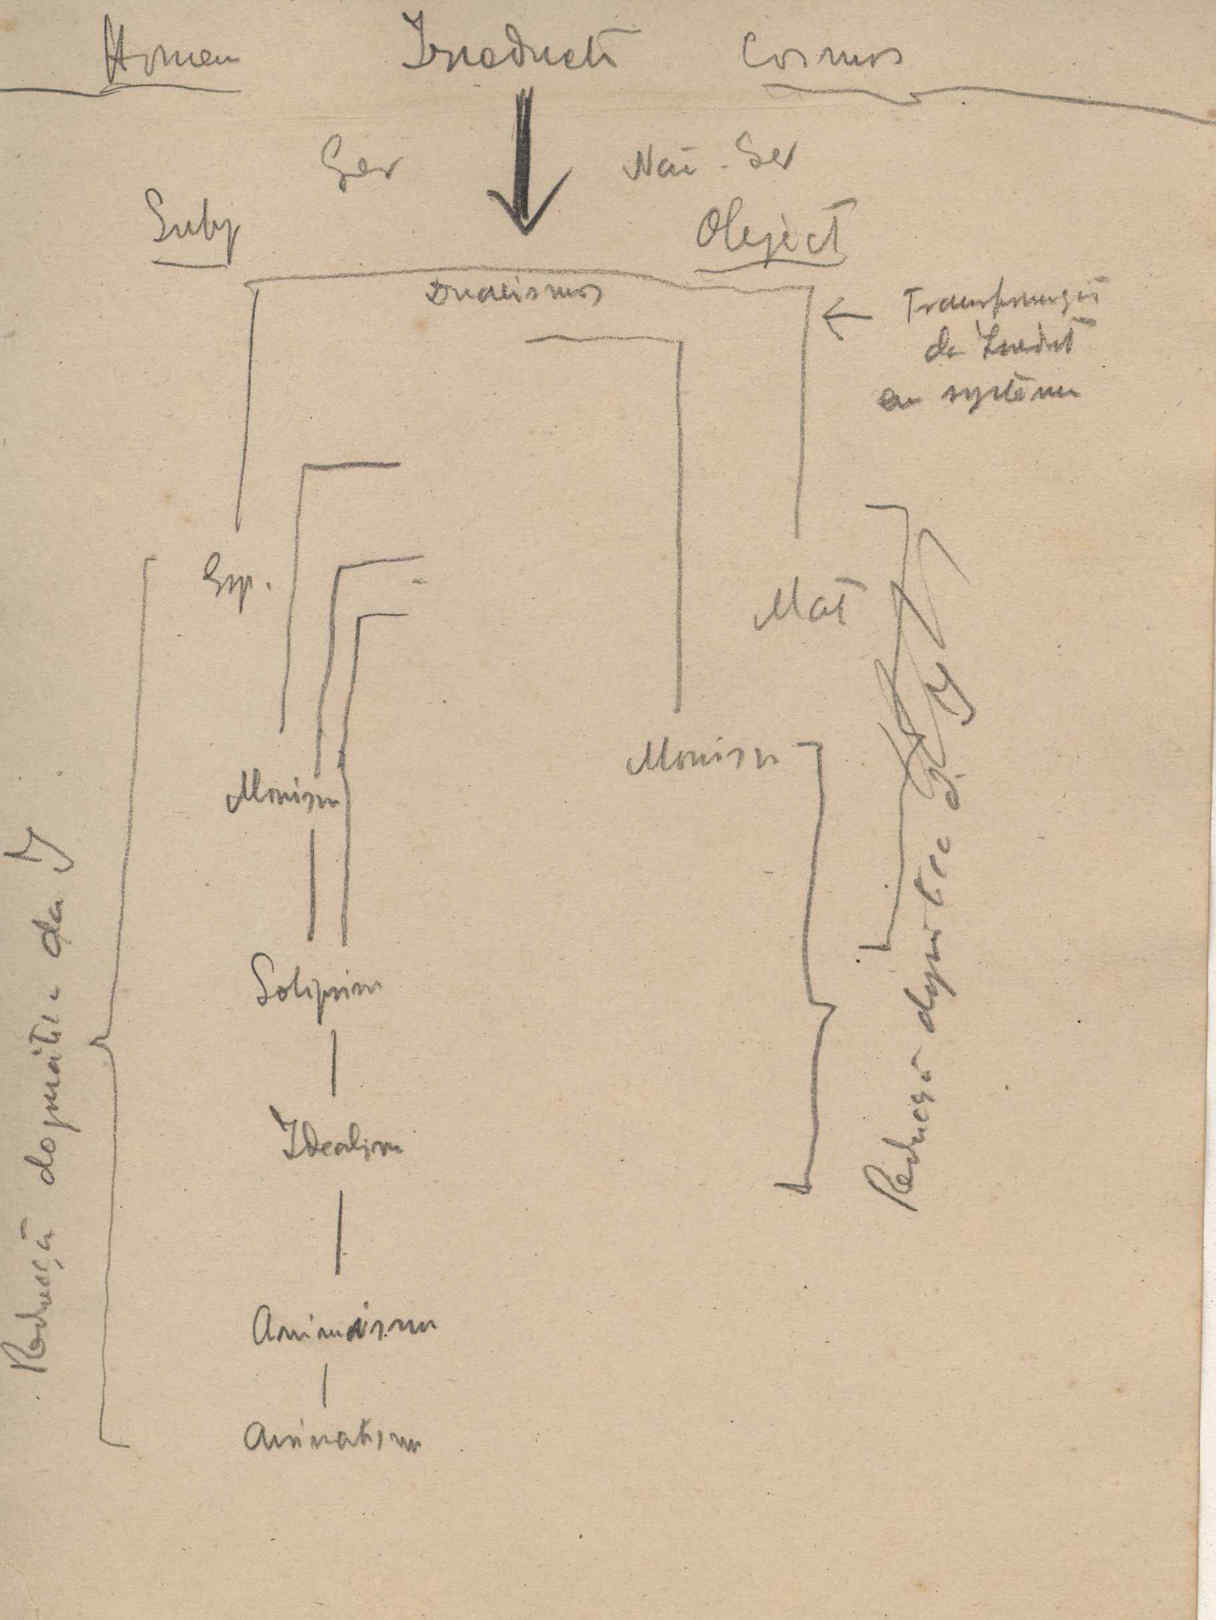 Homem Cosmos
Ser Não-Ser
Subj Object
Dualismo
Transformação
da
em systema
Esp.
Mat
Monism
Monism
Solipsism
Idealism
Animism
Animatism
Redução dogmática da I
Redução dogmática d